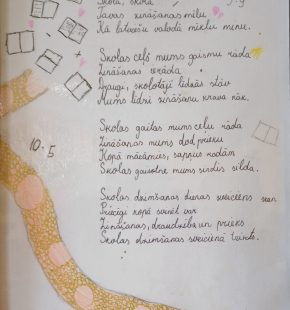 Skola, skola
Tavas zināšanas mīlu
Kā latviešu valodā mīklu minu.
Skolas ceļš mums gaismu rāda
Zināšanas ierāda
Draugi, skolotāji līdzās stāv
Mums līdzi zināšanu krava nāk.
Skolas gaitas mums ceļu rāda
Zināšanas mums dod prieku
Kopā mācāmies, sapņus rodam
Skolas gaisotne mums sirdis silda.
10.5
Skolas dzimšanas dienas sveiciens
Priecīgi kopā svinēt var
Zināšanas, draudzība un prieks
Skolas dzimšanas sveicienā